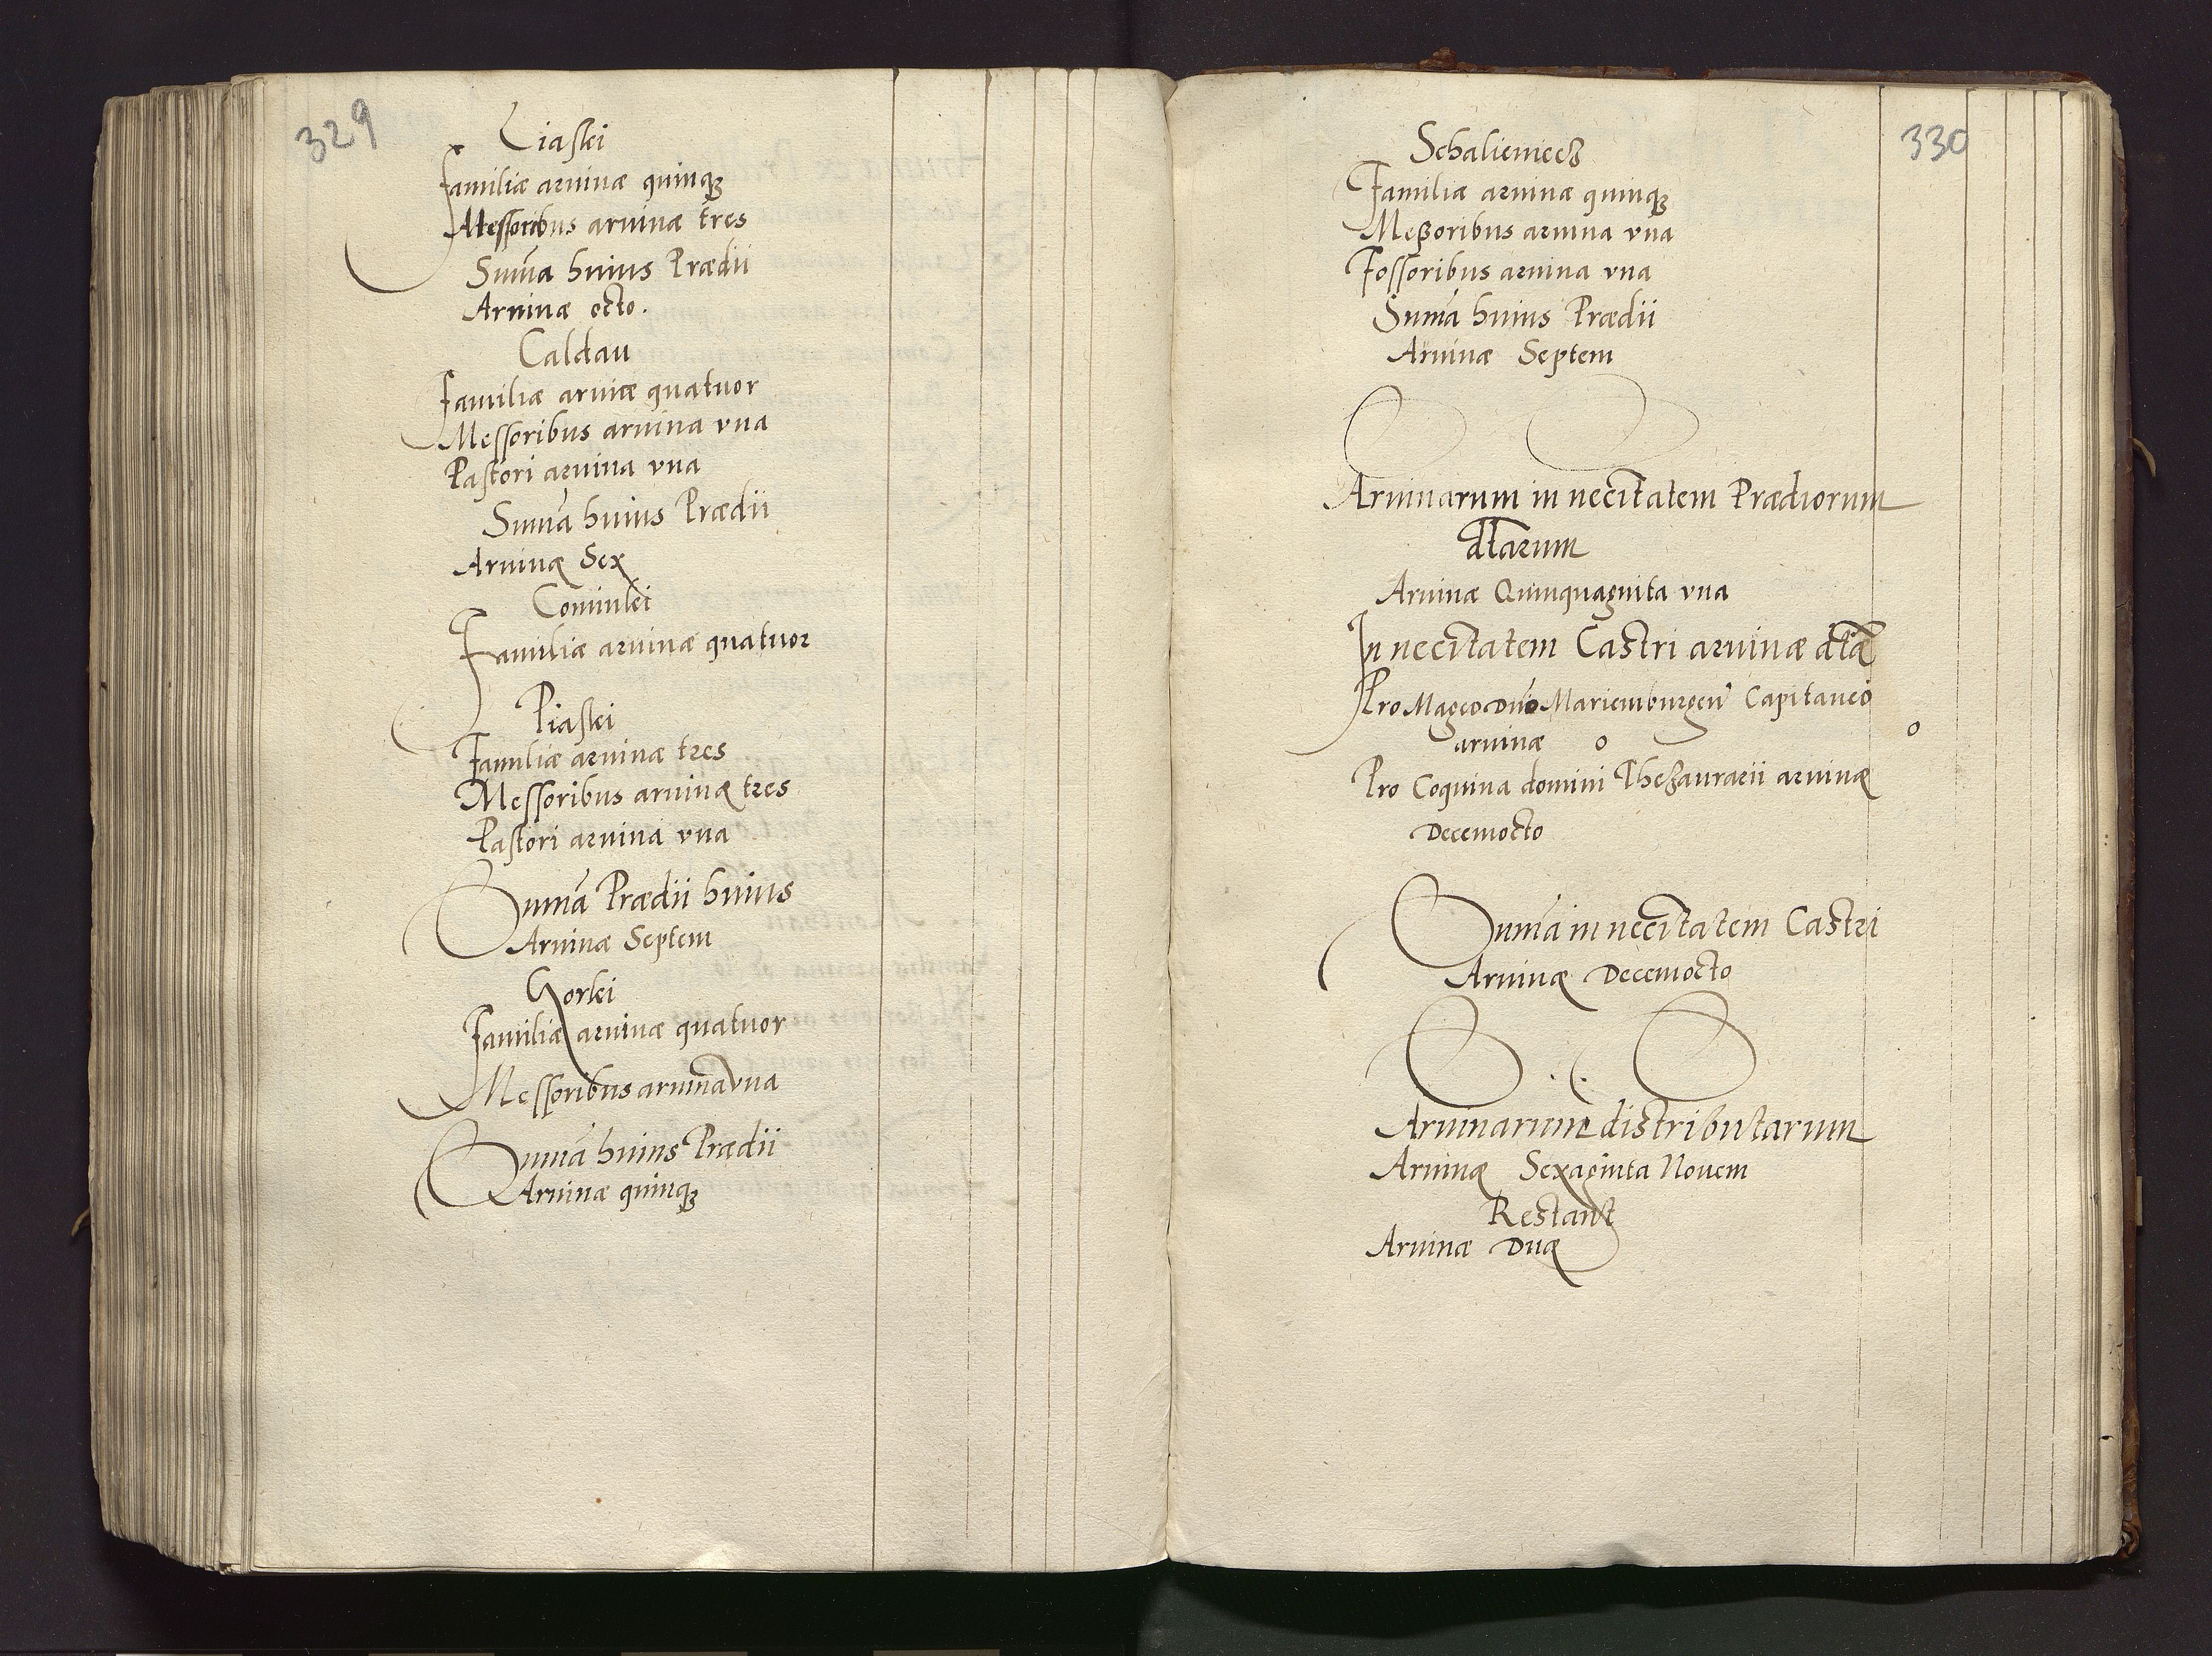 329
Liaski
Familiæ aruinæ quinqꝫ
Messoribus aruinæ tres
Sum̃a huius Prædii
Aruinæ octo.
Caldau
Familiæ aruiæ quatuor
Messoribus aruina vna
Pastori aruina vna
Sum̃a huius Prædii
Aruinæ Sex
Cominki
Familiæ aruinæ quatuor
Piaski
Familiæ aruinæ tres
Messoribus aruinæ tres
Pastori aruina vna
Sum̃a Prædii huius
Aruinæ Septem
Gorki
Familiæ aruinæ quatuor
Messoribus aruina vna
Sum̃a huius Prædii
Aruinæ quinqꝫ
330
Schalieniecz
Familiæ aruinæ quinqꝫ
Meßoribus aruina vna
Fossoribus aruina vna
Sum̃a huius Prædii
Aruinæ Septem
Aruinarum in necītatem Prædiorum
dt̄arum
Aruinæ Quinquaguita vna
In necītatem Castri aruinæ dt̄æ
Pro Magco Dño Mariemburgeñ Capitaneo
aruinæ o o
Pro Coquina domini Thesaurarii aruinæ
Decemocto
Sum̃a in necītatem Castri
Aruinæ Decemocto
Aruinarum distributarum
Aruinæ Sexaginta Nouem
Restant
Aruinæ Duæ